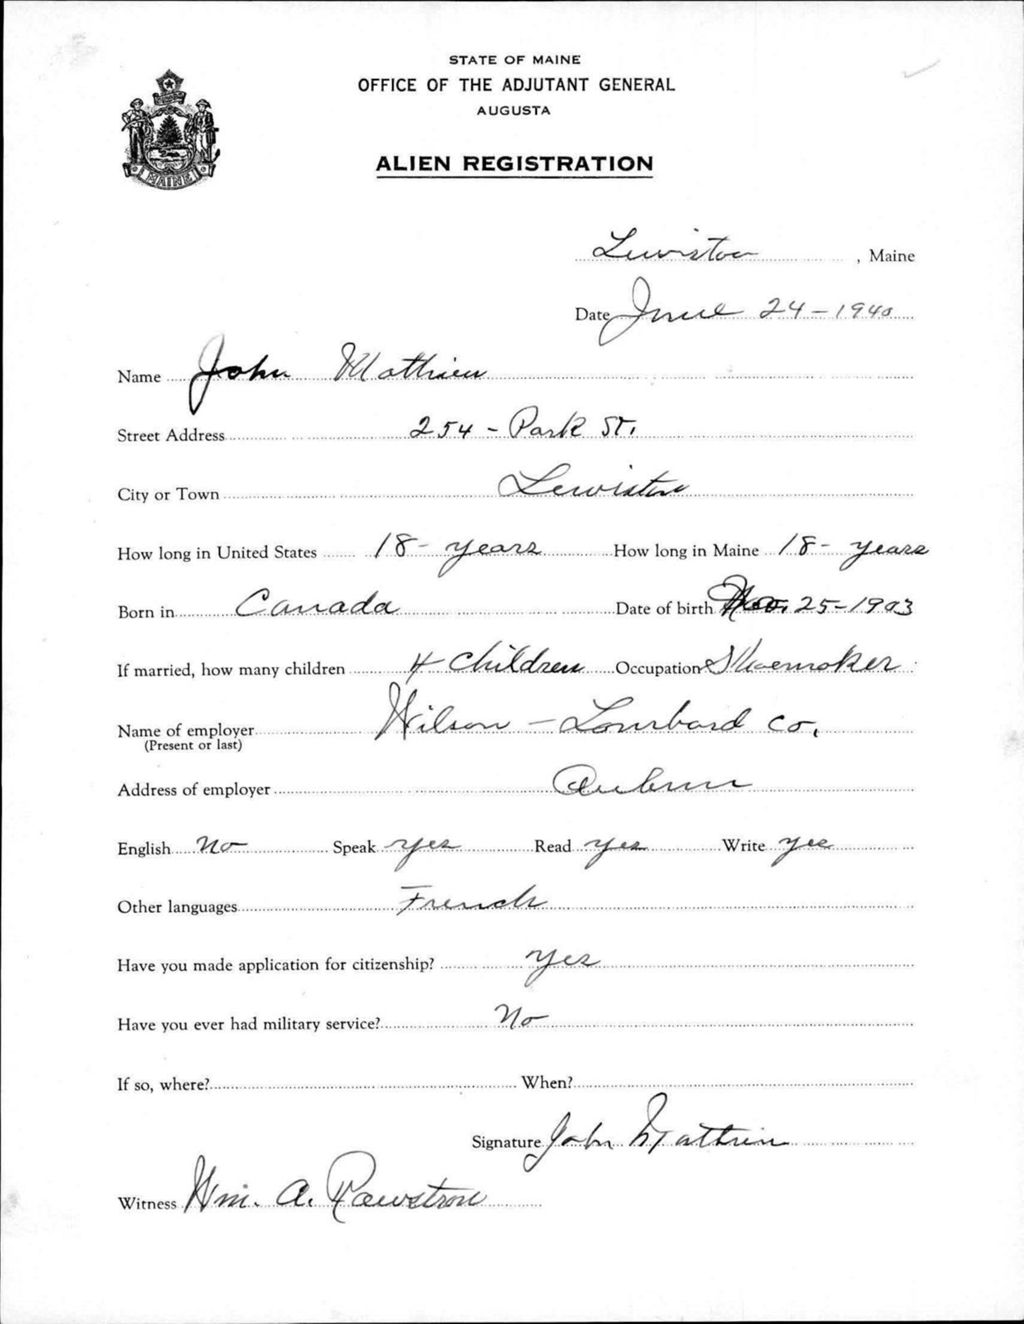 STATE OF MAINE
OFFICE OF THE ADJUTANT GENERAL
AUGUSTA
MAINE
ALIEN REGISTRATION
Lewiston, Maine
Date June 24-1940
Name John Mathieu
Street Address 254 - Park St.
City or Town Lewiston
How long in United States 18- years How long in Maine 18- years
Born in Canada Date of birth 25-1903
If married, how many children 4 Children Occupation Shoemaker
Name of employer Wilson - Lombard Co.
(Present or last)
Address of employer Auburn
English No Speak yes Read yes Write yes
Other languages French
Have you made application for citizenship? Yes
Have you ever had military service? No
If so, where? When?
Signature John Mathieu
Witness Wm. A. Rawstron